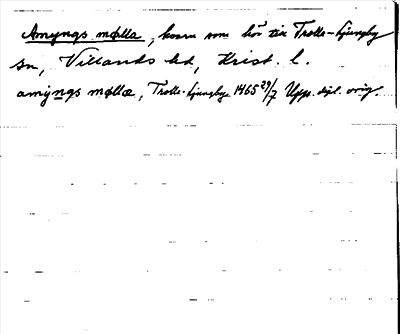 Amyngs mølla, kvarn som hör till Trolle-Ljungby
sn, Villands hd, Krist. l.
amyngs møllæ, Trolle-Ljungby 1465 29/7 Upps. dipl. orig.